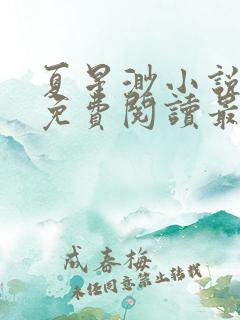 夏星渺小說
免費閱讀最
成春梅
未经同意禁止转载